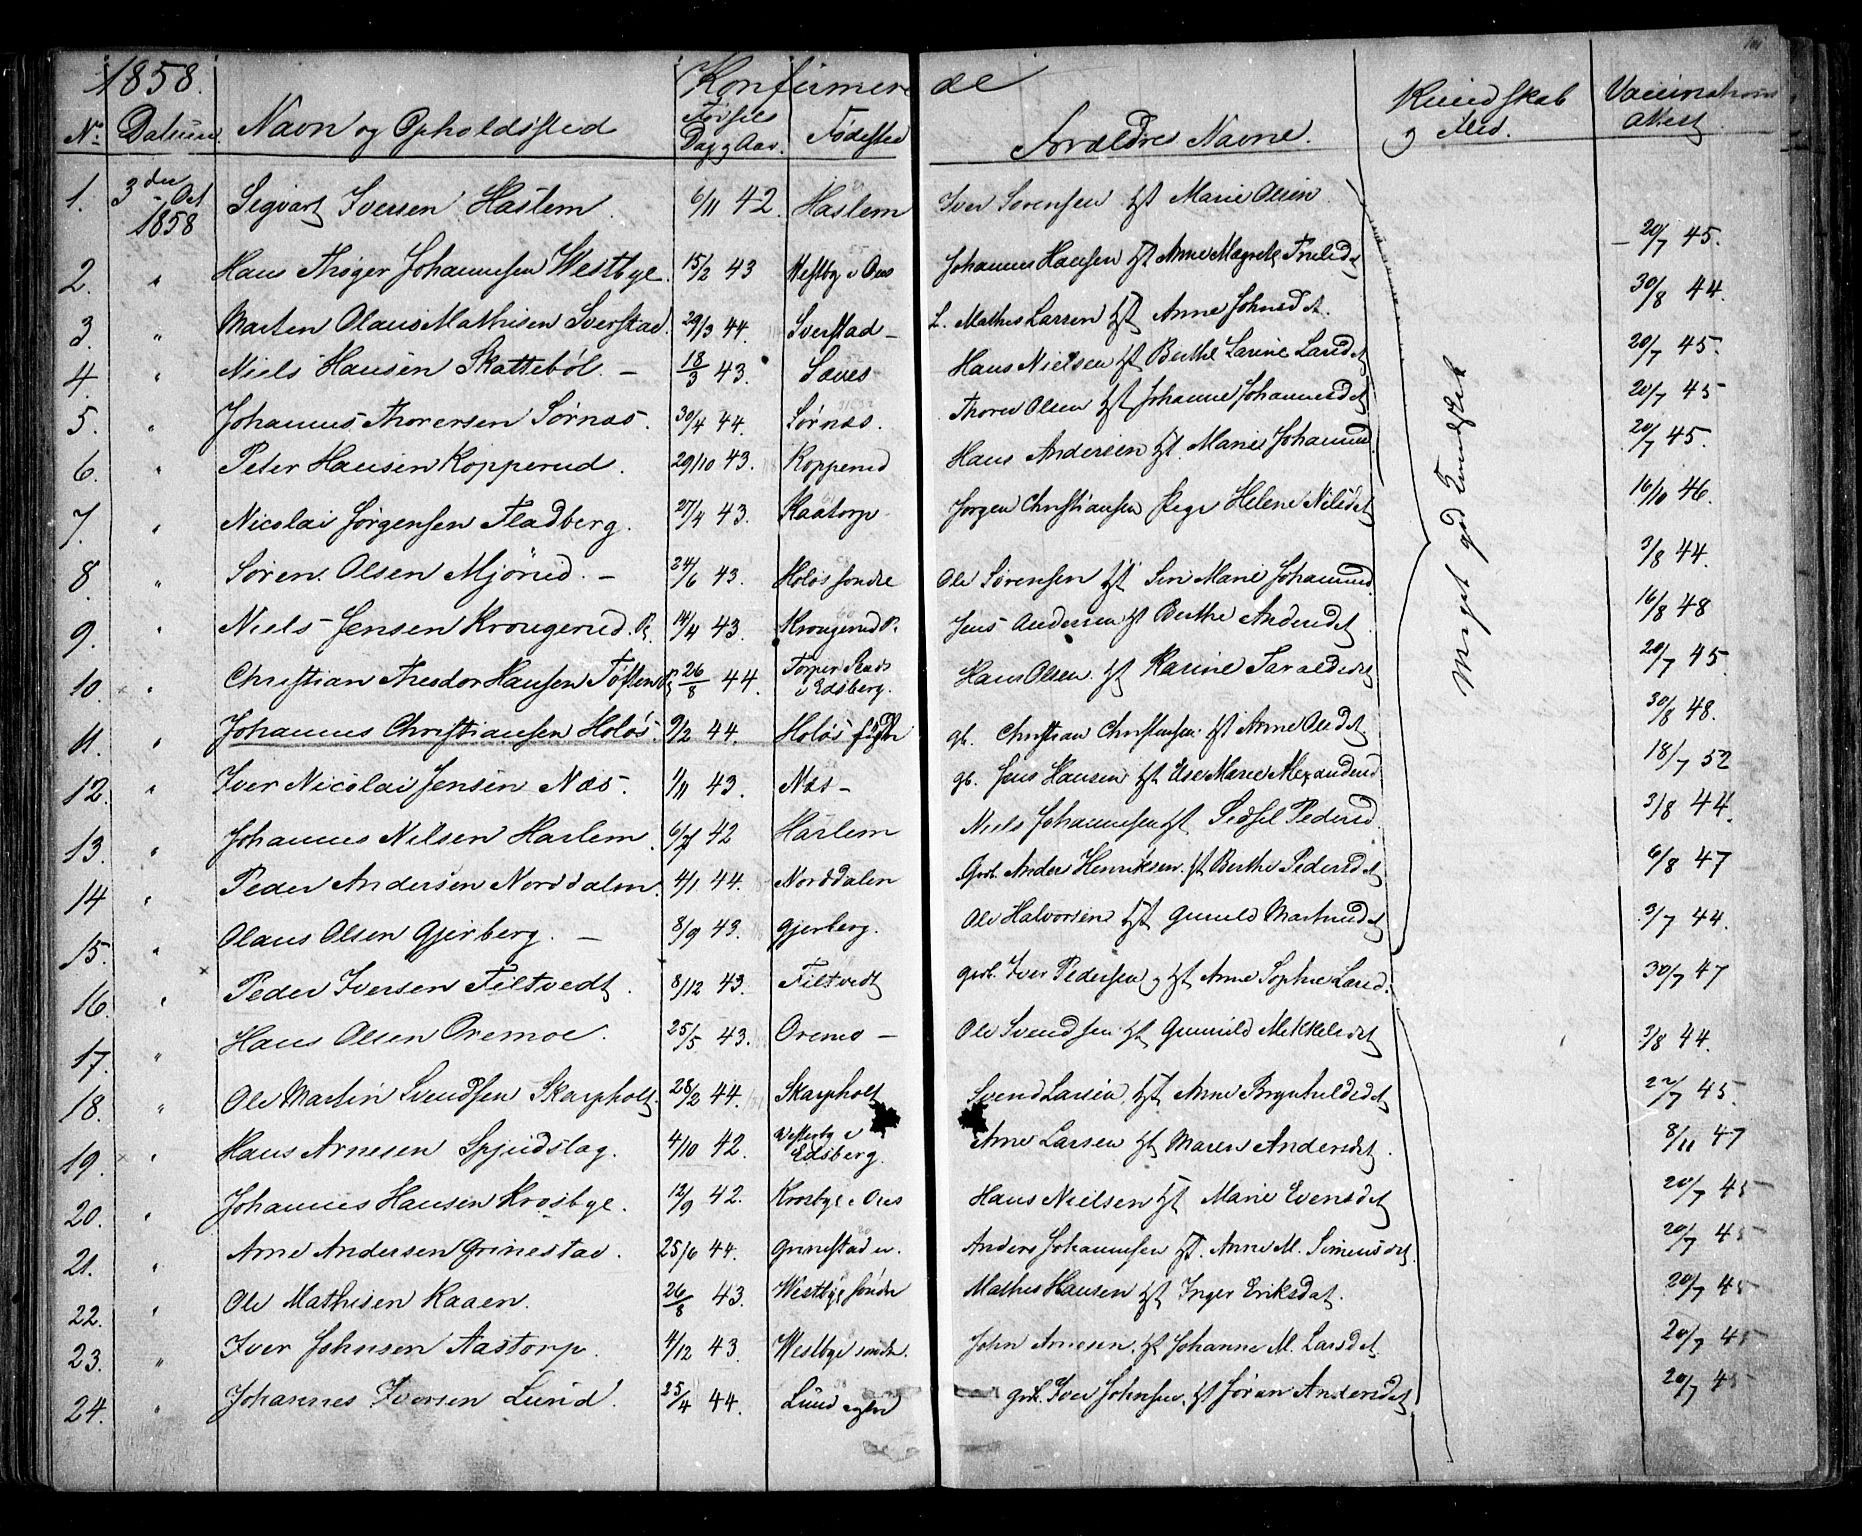 1858. Konfirmerede
No. Datum Navn og Opholdsted Fødsels Dag og Aar. Fødested Forældres Navne. Kundskab og Flid. Vaccinations attest
1. 3die Oct 1858 Sigvart Iversen Haslem. 6/11 42. Haslem Iver Sørensen Hst Marie Olsen 20/7 45.
2. " Hans Thøger Johannesen Westbye. 15/2 43 Westby i Aas Johannes Hansen Hst Anne Magrete 30/8 44.
3. " Marten Olaus Mathisen Sverstad. 29/3 44. Sverstad - L. Mathes Larsen Hst Anne Johnsdt. 20/7 45.
4. " Niels Hansen Skattebøl. - 18/3 43. Saues Hans Nielsen Hst Berthe Larine Larsdt 20/7 45
5. " Johannes Thorersen Sørnæs. 30/4 44. Sørnæs. Thorer Olsen Hst Johanne Johannesdt 20/7 45.
6. " Peter Hansen Kopperud. 29/10 43. Kopperud Hans Andersen Hst. Marie Johannesd. 16/10 46.
7. " Nicolai Jørgensen Fladberg. 27/4 43. Kaatorp Jørgen Christiansen Pige Helene Nilsdt 3/8 44.
8. " Søren Olsen Mjørud. - 24/6 43. Holøs søndre Ole Sørensen Hst Siri Marie Johannesd. 16/8 48
9. " Niels Jensen Krougerud. P. 14/4 43. Krougerud P. Jens Andersen Hst Berthe Andersdt 20/7 45
10. " Christian Theodor Hansen Tøften P. 26/8 44. Torper Stads i Edsberg. Hans Olsen Hst Karine Taraldsdt 30/8 48.
11. " Johannes Christiansen Holøs. 9/2 44. Holøs gb. Christian Christensen Hst Anne Olsdt. 18/7 52
12. " Iver Nicolai Jensen Næs. 1/11 43. Næs - gb. Jens Hansen Hst Else Marie Alexandersd 3/8 44.
13. " Johannes Nilsen Harlem. 6/7 42 Harlem Niels Johannesen Hst Sidsel Pedersd. 6/8 47
14 " Peder Andersen Norddalen. 4/1 44. Norddalen Grb. Anders Henriksen. Hst Berthe Pedersdt 3/7 44.
15. " Olaus Olsen Gjerberg. - 8/9 43. Gjerberg. Ole Halvorsen Hst Gunild Martinsdt 30/7 47
16. " Peder Iversen Filtvedt. 8/12 43. Filtvedt Grb. Iver Pedersen og Hst Anne Sophie Larsd. 3/8 44.
17. " Hans Olsen Oremoe. 25/5 43. Oremo - Ole Svendsen Hst Gunnild Mekkelsdt 22/7 45.
18. " Ole Martin Svendsen Skarpholt 28/2 44. Skarpholt Svend Larsen Hst. Anne Brynhuldsdt 8/11 47
19. " Hans Arnesen Spjudslag. 4/10 42. Vesterby i Edsberg. Arne Larsen Hst Maren Andersdt. 20/7 45
20. " Johannes Hansen Krosbye. 12/9 42. Krosbye i Aas Hans Nielsen Hst Marie Evensdt 20/7 45
21. " Arne Andersen Grinestad. 25/6 44. Grinestad n. Anders Johannesen Hst. Anne M. Simensdt 20/7 45
22. " Ole Mathisen Kaaen. 26/8 43. Westbye søndre Mathes Hansen Hst Inger Eriksdat. 20/7 45
23. " Iver Johnsen Aastorp. 4/12 43. Westbye søndr. John Arnesen. Hst Johanne M. Larsdt 20/7 45
24. " Johannes Iversen Lund. 25/4 44. Lund Grb. Iver Johnsen. Hst Jøran Andersdt
Meget god Kundskab